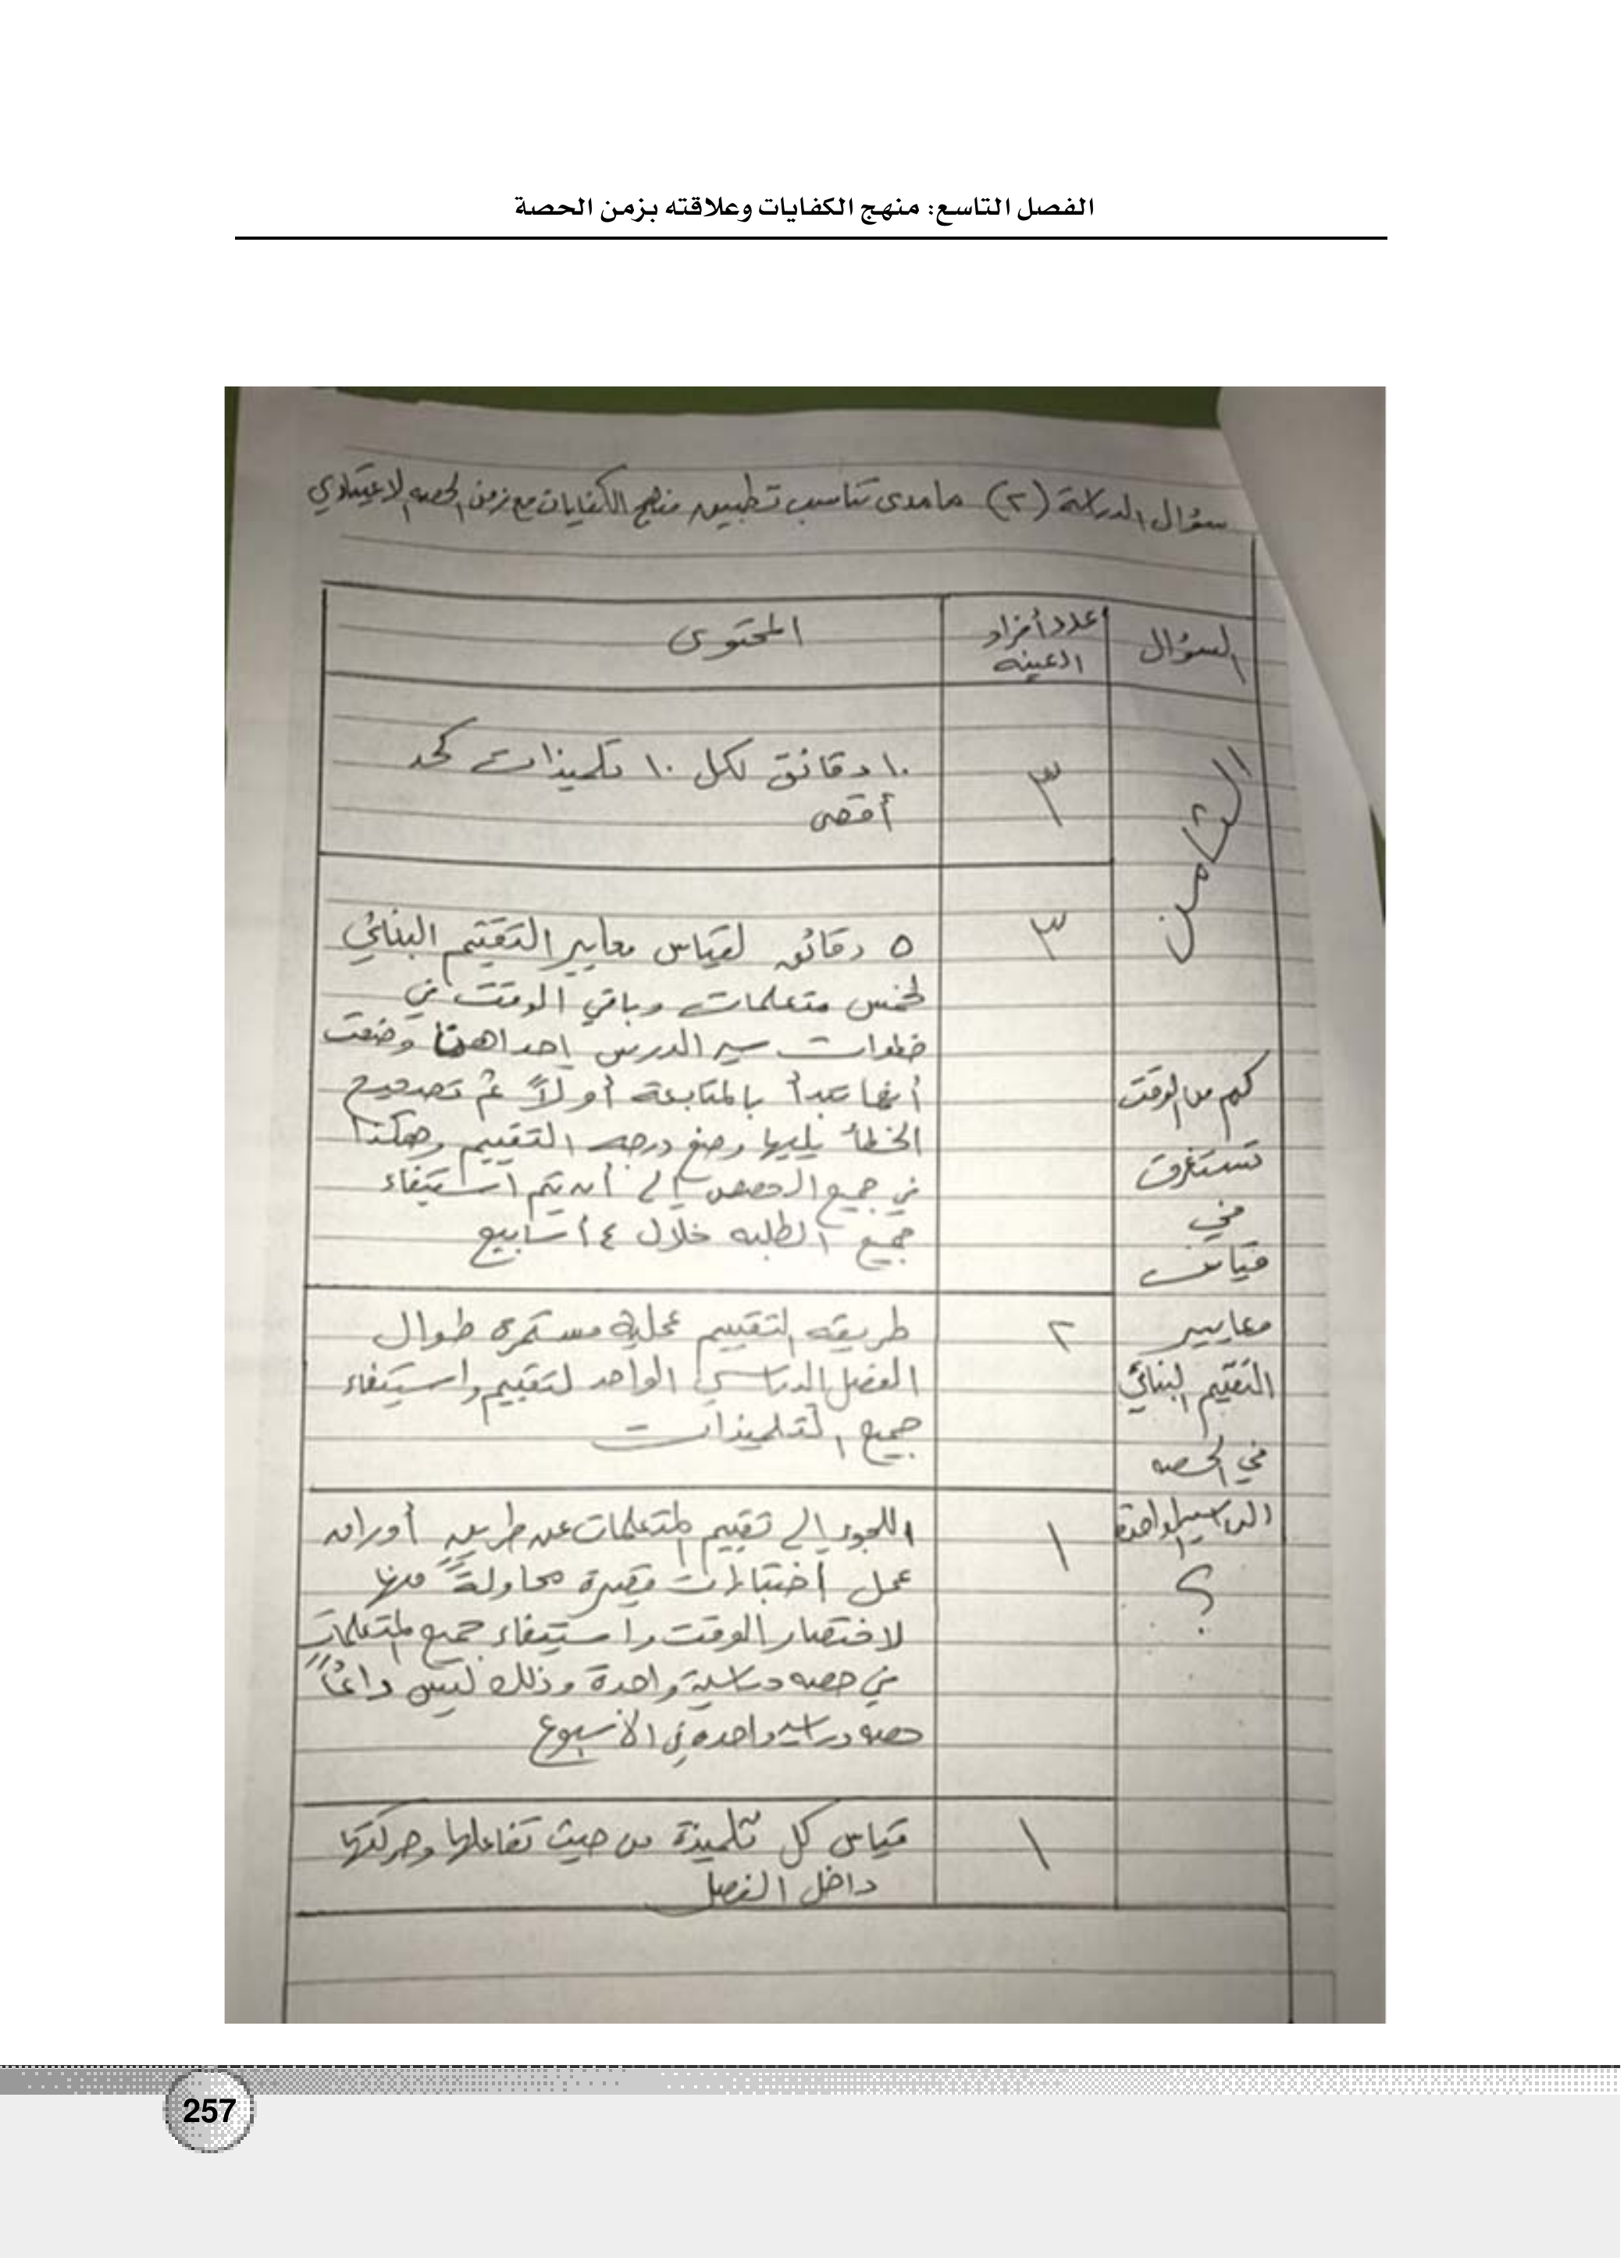 الفصل التاسع: منهج الكفايات وعلاقته بزمن الحصة
سؤال الدراسة (٢) ما مدى تناسب تطبيق منهج الكفايات مع زمن الحصه الاعتيادي
السؤال
عدد أفراد
العينه
المحتوى
الثامن
كم من الوقت
تستغرق
في
قياس
معايير
التقييم البنائي
في الحصه
الدراسية الواحدة
؟
٣
١٠ دقائق لكل ١٠ تلميذات كحد
أقصى
٣
٥ دقائق لقياس معايير التقييم البنائي
لخمس متعلمات وباقي الوقت في
خطوات سير الدرس إحداهن وضعت
أنها تبدأ بالمتابعة أولاً ثم تصحيح
الخطأ يليها وضع درجه التقييم وهكذا
في جميع الحصص إلى أن يتم استيفاء
جميع الطلبه خلال ٤ أسابيع
٢
طريقه التقييم عملية مستمرة طوال
الفصل الدراسي الواحد لتقييم واستيفاء
جميع التلميذات
١
اللجوء إلى تقييم المتعلمات عن طريق أوراق
عمل أختبارات قصيرة محاولةً منها
لاختصار الوقت واستيفاء جميع المتعلمات
في حصه دراسية واحدة وذلك ليس دائماً
حصه دراسيه واحده في الأسبوع
١
قياس كل تلميذة من حيث تفاعلها وحركتها
داخل الفصل
257